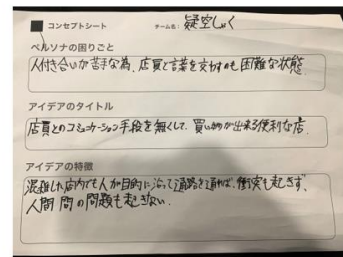 コンセプトシート チーム名: 疑空しょく
ペルソナの困りごと
人付き合いが苦手な為、店員と言葉を交わすのも困難な状態
アイデアのタイトル
店員とのコミュニケーション手段を無くして、買い物が出来る便利な店.
アイデアの特徴
混雑した店内でも人が目的に沿って通路を通れば、衝突も起きず、
人間間の問題も起きない.